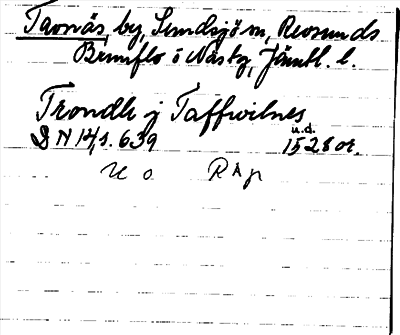 Tavnäs, by, Sundsjö sn, Revsunds
Brunflo o Näs tg, Jämtl. l.
Trondh j Taffwilnes
D N 14, s. 639 u.d. 1528 or.
U o RAp